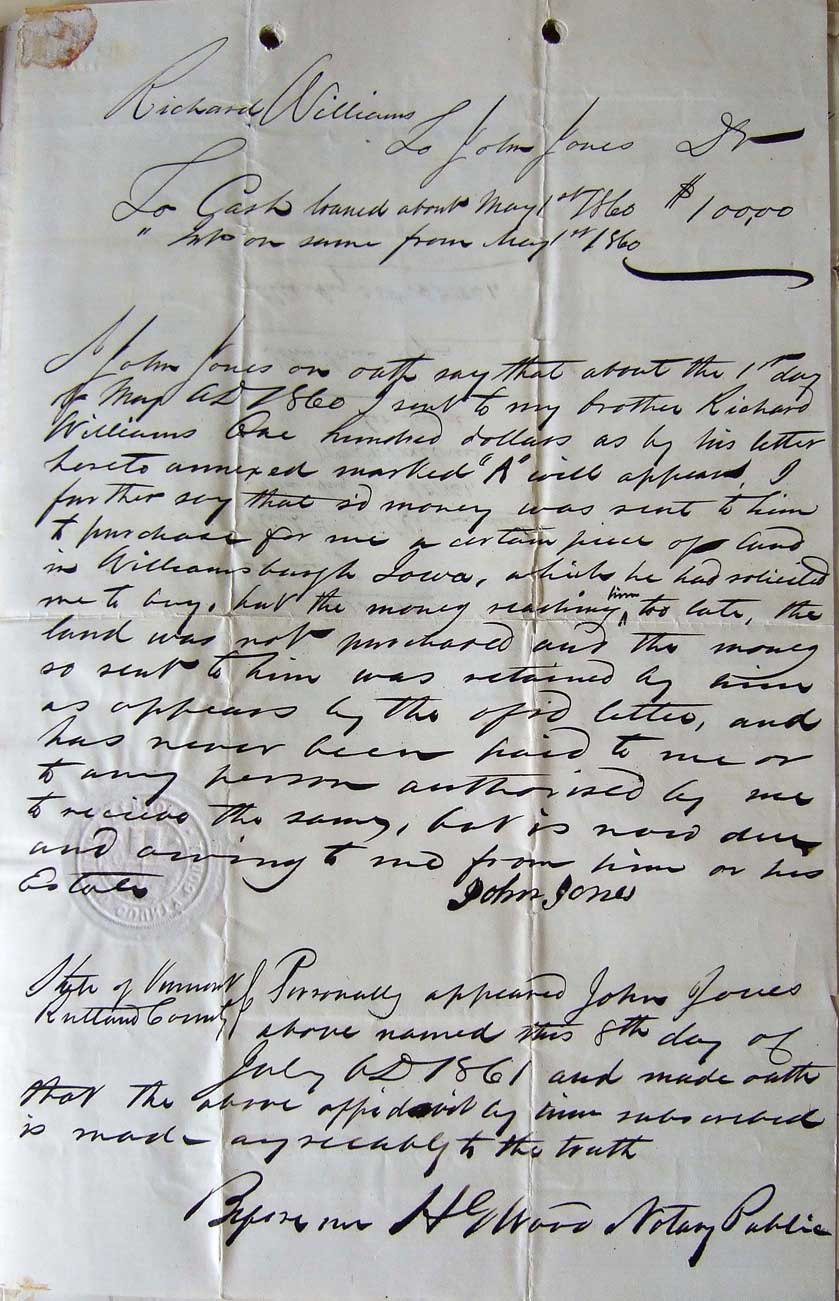 Richard Williams
To John Jones Dr
To Cash loaned about May 1st 1860 $100,00
" Int on same from May 1st 1860
I John Jones on oath say that about the 1st day
of May AD 1860 I sent to my brother Richard
Williams One hundred dollars as by his letter
hereto annexed marked "A" will appear, I
further say that sd money was sent to him
to purchase for me a certain piece of land
in Williamsburgh Iowa, which he had solicited
me to buy, but the money reaching him too late, the
land was not purchased and the money
so sent to him was retained by him
as appears by the afsd letter, and
has never been paid to me or
to any person authorised by me
to recieve the same, but is now due
and owing to me from him or his
Estate John Jones
State of Vermont
Rutland County
Personally appeared John Jones
above named this 8th day of
July AD 1861 and made oath
that the above affidavit by him subscribed
is made agreeably to the truth
Before me H G Wood Notary Public